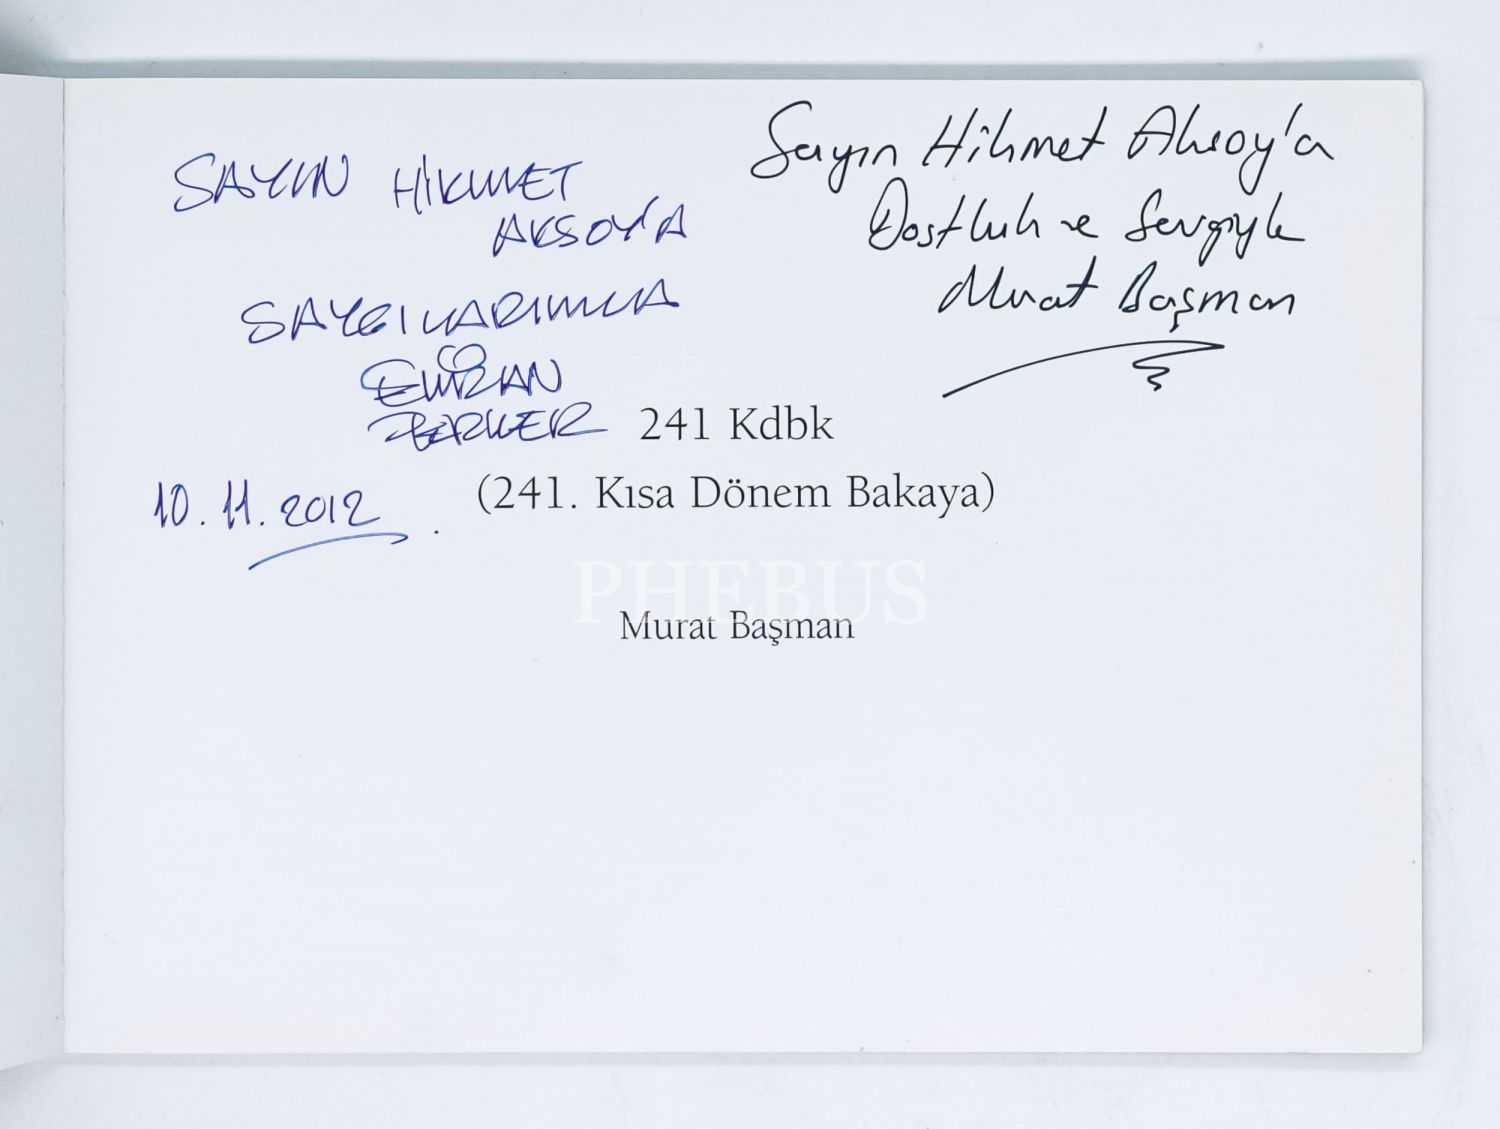 SAYIN HİKMET
AKSOY'A
SAYGILARIMLA
10.11.2012
Sayın Hikmet Aksoy'a
Dostluk ve Sevgiyle
Murat Başman
241 Kdbk
(241. Kısa Dönem Bakaya)
PHEBUS
Murat Başman